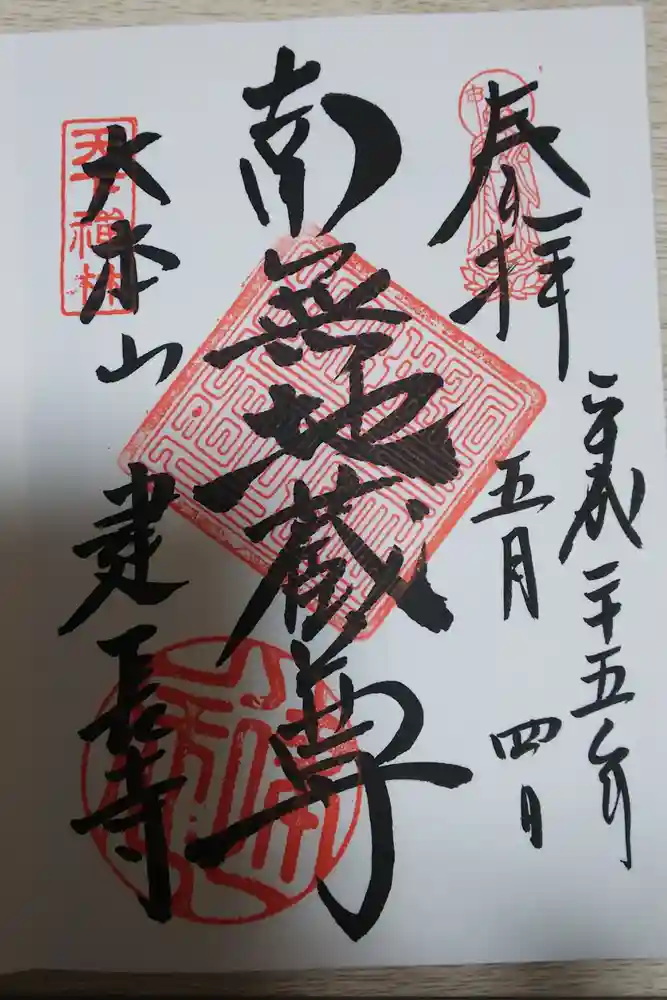 奉拝
平成二十五年
五月四日
南無地蔵尊
大本山
建長寺
天下禅林